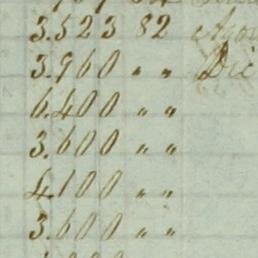 3.523 82 Agos
3.960 " " Dic
6.400 " "
3.600 " "
4.100 " "
3.600 " "